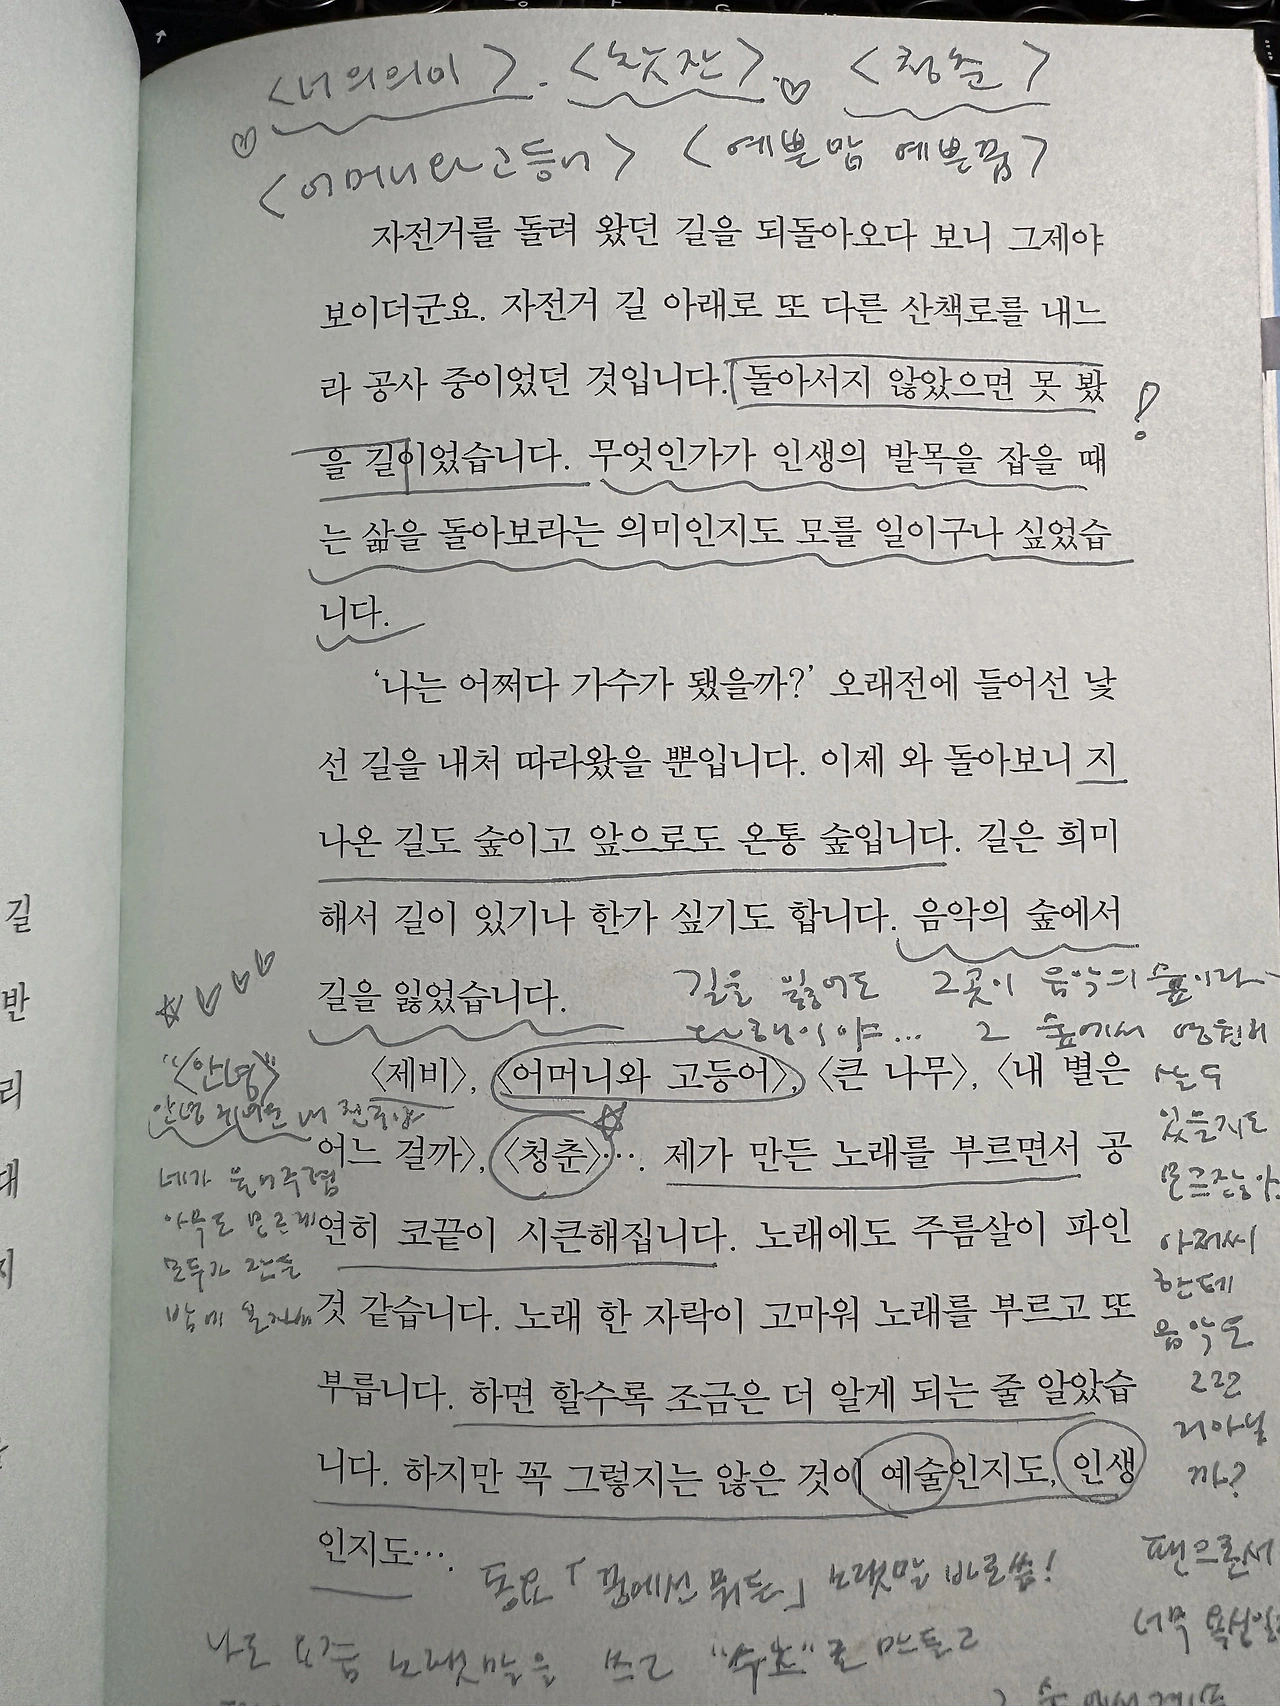 <너의의미>. <찻잔>. <청춘>
<어머니와고등어> <예쁜맘 예쁜꿈>
자전거를 돌려 왔던 길을 되돌아오다 보니 그제야
보이더군요. 자전거 길 아래로 또 다른 산책로를 내느
라 공사 중이었던 것입니다. 돌아서지 않았으면 못 봤
을 길이었습니다. 무엇인가가 인생의 발목을 잡을 때
는 삶을 돌아보라는 의미인지도 모를 일이구나 싶었습
니다.
‘나는 어쩌다 가수가 됐을까?’ 오래전에 들어선 낯
선 길을 내처 따라왔을 뿐입니다. 이제 와 돌아보니 지
나온 길도 숲이고 앞으로도 온통 숲입니다. 길은 희미
해서 길이 있기나 한가 싶기도 합니다. 음악의 숲에서
길을 잃었습니다.
〈제비〉, 〈어머니와 고등어〉, 〈큰 나무〉, 〈내 별은
어느 걸까〉, 〈청춘〉…. 제가 만든 노래를 부르면서 공
연히 코끝이 시큰해집니다. 노래에도 주름살이 파인
것 같습니다. 노래 한 자락이 고마워 노래를 부르고 또
부릅니다. 하면 할수록 조금은 더 알게 되는 줄 알았습
니다. 하지만 꼭 그렇지는 않은 것이 예술인지도, 인생
인지도….
길을 잃어도 그곳이 음악의 숲이라
다행이야... 그 숲에서 영원히
살 수
있을지도
모르잖아.
아저씨
한테
음악도
그런
거아닐
까?
팬으론서
너무 욕심일
"<안녕>"
안녕 내
네가 물어주렴
아무도 모르게
모두가 잠든
밤에
동요 「꿈에선 뭐든」 노랫말 바로씀!
나도 요즘 노랫말을 쓰고 로 만들고
길
반
리
대
지